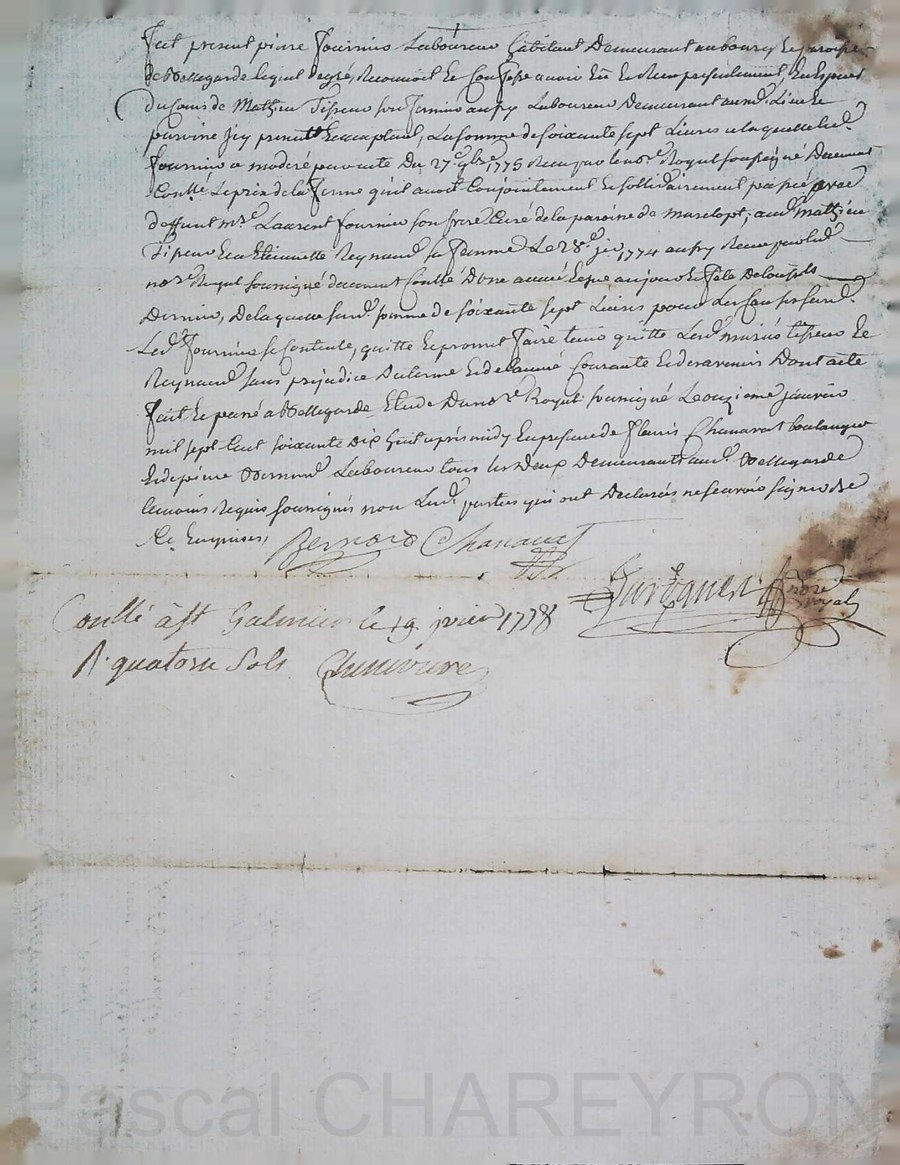 fut present pierre fournier Laboureur habitant Demeurant au bourg et paroisse
de Bellegarde lequel degré, Reconnoit et Confesse avoir Eü et Reçu presentement, En Especes
du Cours de Mathieu Tisseur son fermier au fry Laboureur Demeurant aud. Lieu
present et acceptant, La somme de soixante sept Livres a laquelle led.
fournier a modéré par acte Du 27.e 9bre 1775 Reçu par le no.re Royal soussigné Duement
Contlé Le prix de la ferme qu'il avoit Conjointement et sollidairement passé avec
deffunt m.re Laurent fournier son frere Curé de la paroisse de Marclopt, aud. Mathieu
Tisseur Et a Etiennette Reynaud sa femme Le 28.e 1774 Reçu par led.
no.re Royal soussigné duement Contlé D'une année Echue a la fete De toussts
Dernier, De laquelle surd. somme de soixante sept Livres pour Les Causes surd.
Led. fournier se Contente, quitte et promet faire tenir quitte Lesd. mariés tisseur Et
Reynaud sans prejudice Du terme Et de L'année Courante Et de ravenir Dont acte
fait Et passé a Bellegarde Etude Du no.re Royal soussigné Le onzieme janvier
mil sept Cent soixante Dix huit apres midy En presence de fleuris Chanavat boulanger
Et de pierre Bernard Laboureur tous Les Deux Demeurants aud. Bellegarde
temoins Requis soussignés non Lesd. parties qui ont Declarés ne sçavoir signer De
Ce Enquises,
Bernard Chanavat
no.re royal
Contlé à St Galmier le 19 jvier 1778
R. quatorze Sols
Pascal CHAREYRON